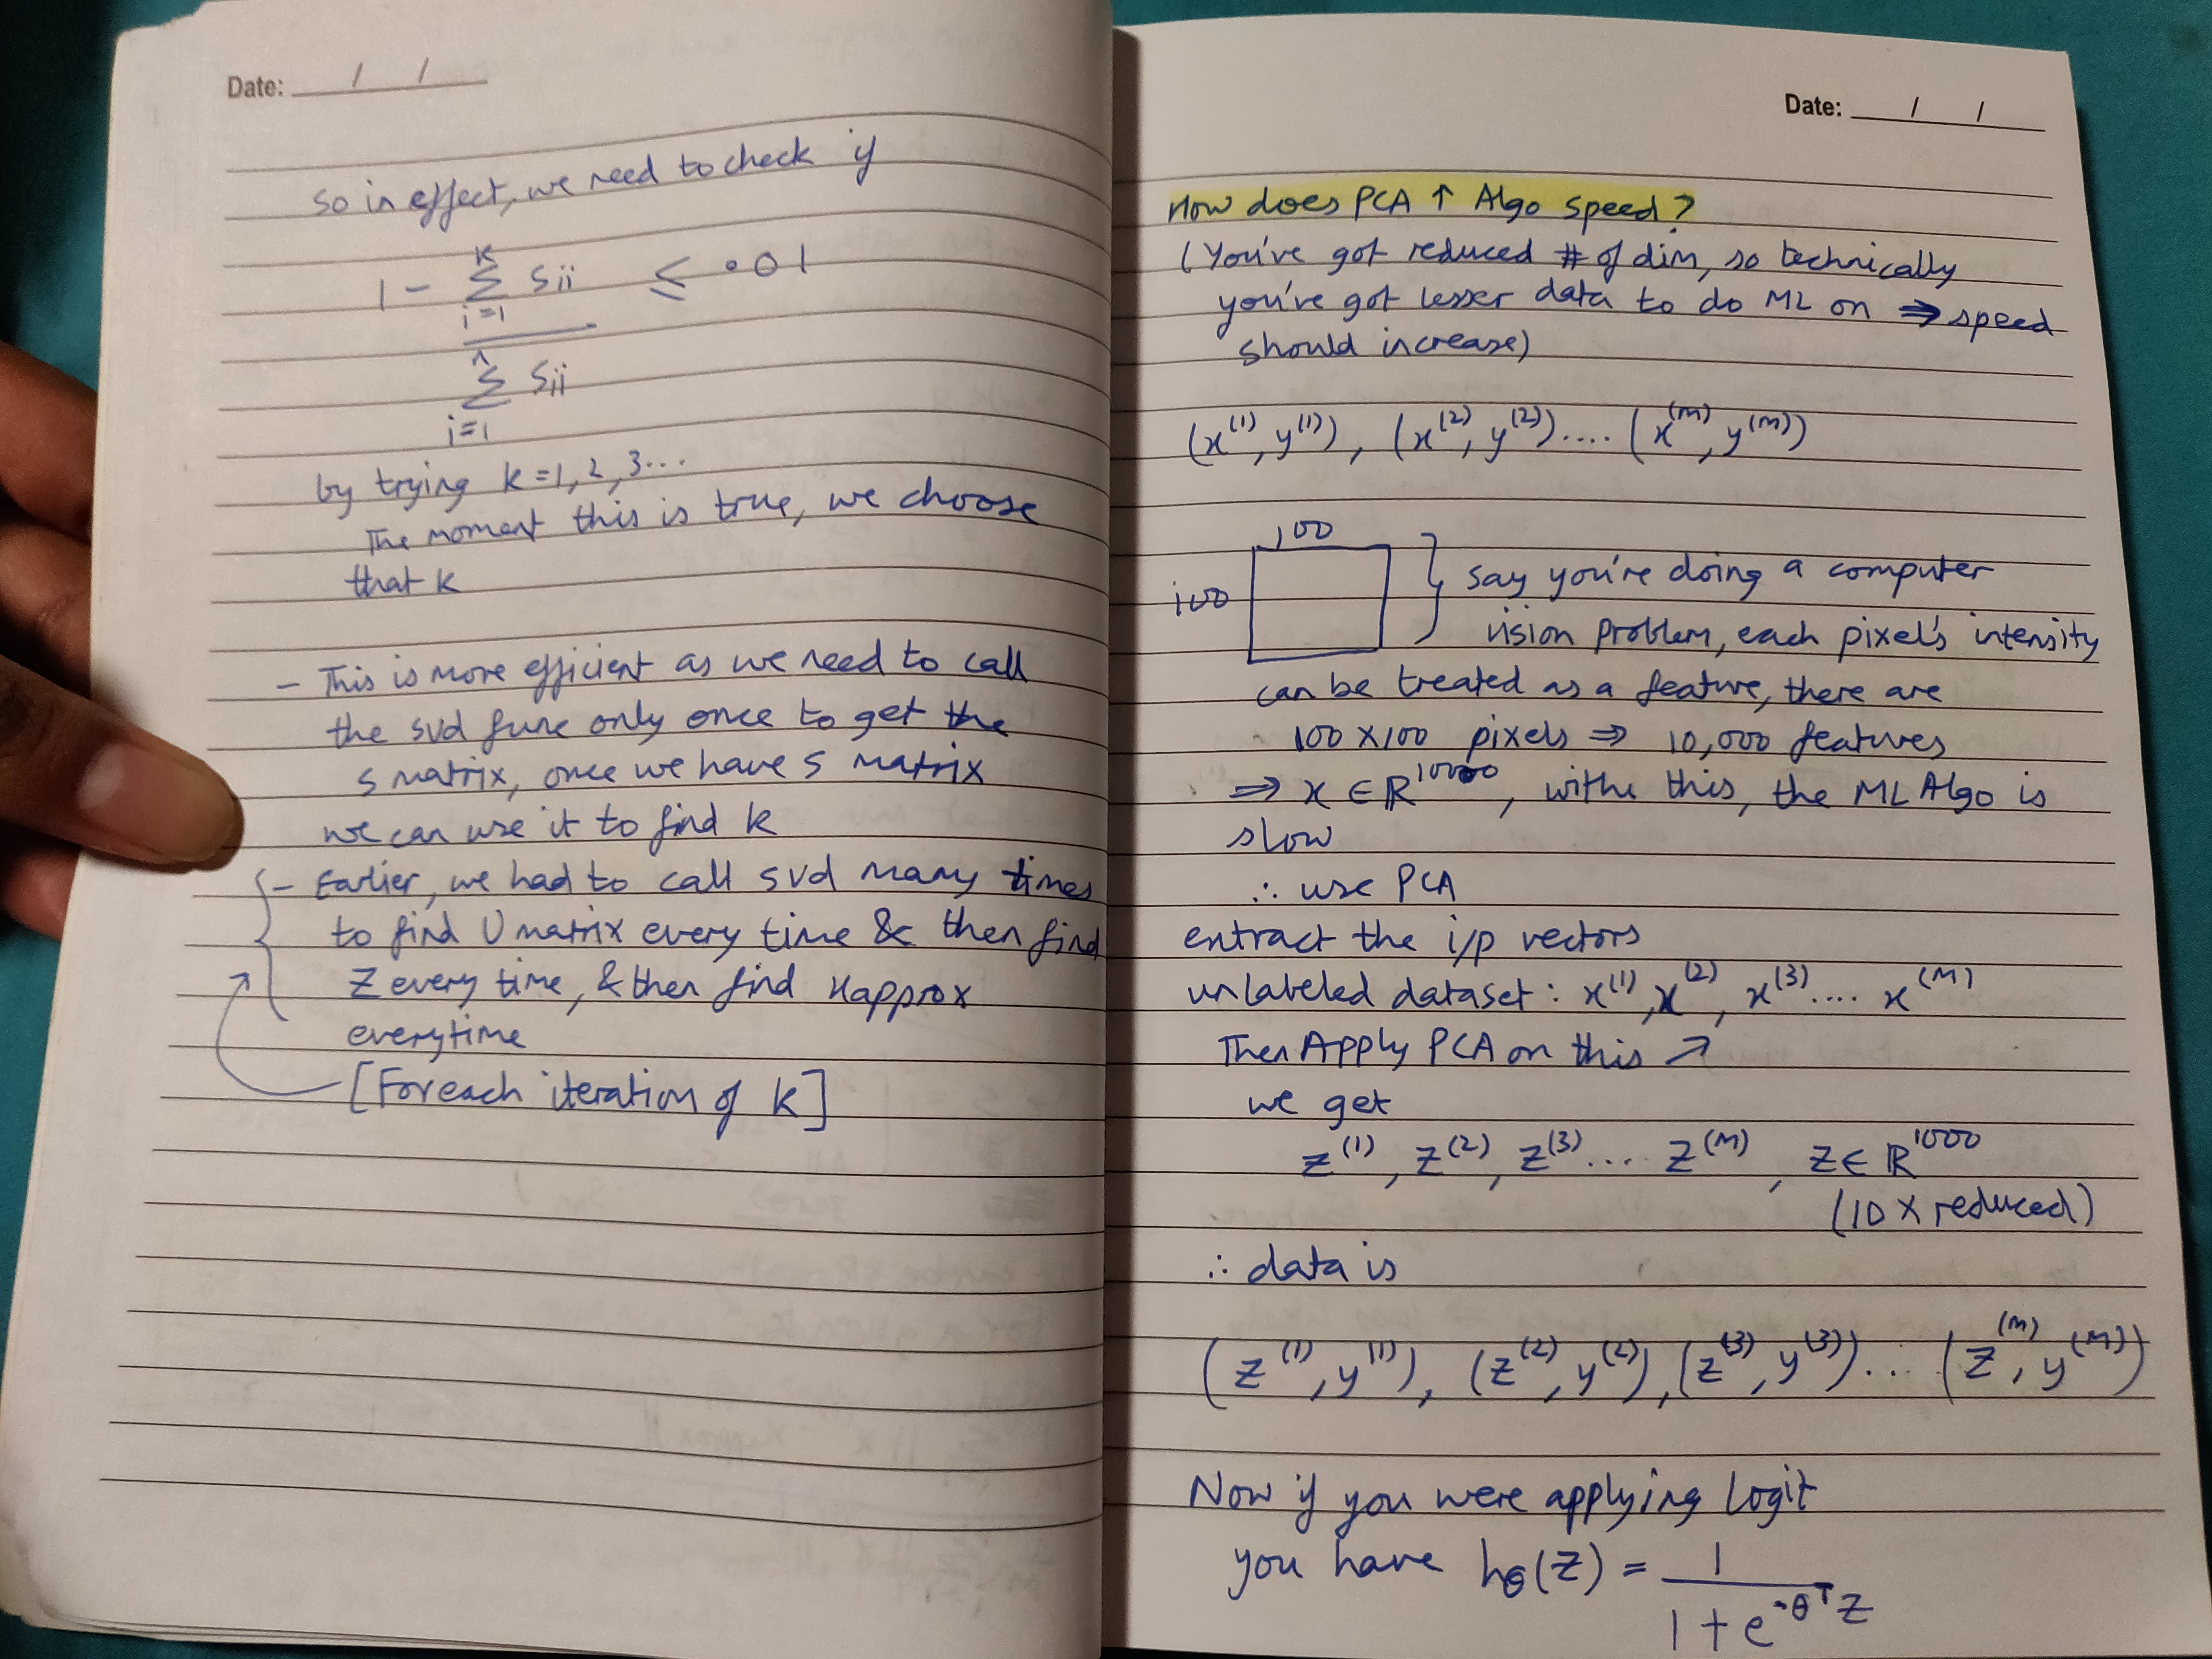 Date: / /
So in effect, we need to check if
1 - K Σ i=1 Sii ≤ .01
n Σ i=1 Sii
by trying K=1, 2, 3...
The moment this is true, we choose
that K
- This is more efficient as we need to call
the svd func only once to get the
S matrix, once we have S matrix
we can use it to find K
- Earlier, we had to call svd many times
to find U matrix every time & then find
Z every time, & then find Xapprox
everytime
[For each iteration of K]
Date: / /
How does PCA ↑ Algo speed?
(You've got reduced # of dim, so technically
you've got lesser data to do ML on ⇒ speed
should increase)
(x⁽¹⁾, y⁽¹⁾), (x⁽²⁾, y⁽²⁾).... (x⁽ᵐ⁾, y⁽ᵐ⁾)
100
100 } say you're doing a computer
vision problem, each pixel's intensity
can be treated as a feature, there are
100 X 100 pixels ⇒ 10,000 features
⇒ x ∈ R¹⁰⁰⁰⁰, withe this, the ML Algo is
slow
∴ use PCA
extract the i/p vectors
unlabeled dataset: x⁽¹⁾, x⁽²⁾, x⁽³⁾.... x⁽ᵐ⁾
Then Apply PCA on this ↗
we get
z⁽¹⁾, z⁽²⁾, z⁽³⁾.... z⁽ᵐ⁾, z ∈ R¹⁰⁰⁰
(10 X reduced)
∴ data is
(z⁽¹⁾, y⁽¹⁾), (z⁽²⁾, y⁽²⁾), (z⁽³⁾, y⁽³⁾)... (z⁽ᵐ⁾, y⁽ᵐ⁾)
Now if you were applying Logit
you have hθ(z) = 1
1 + e^-θᵀz